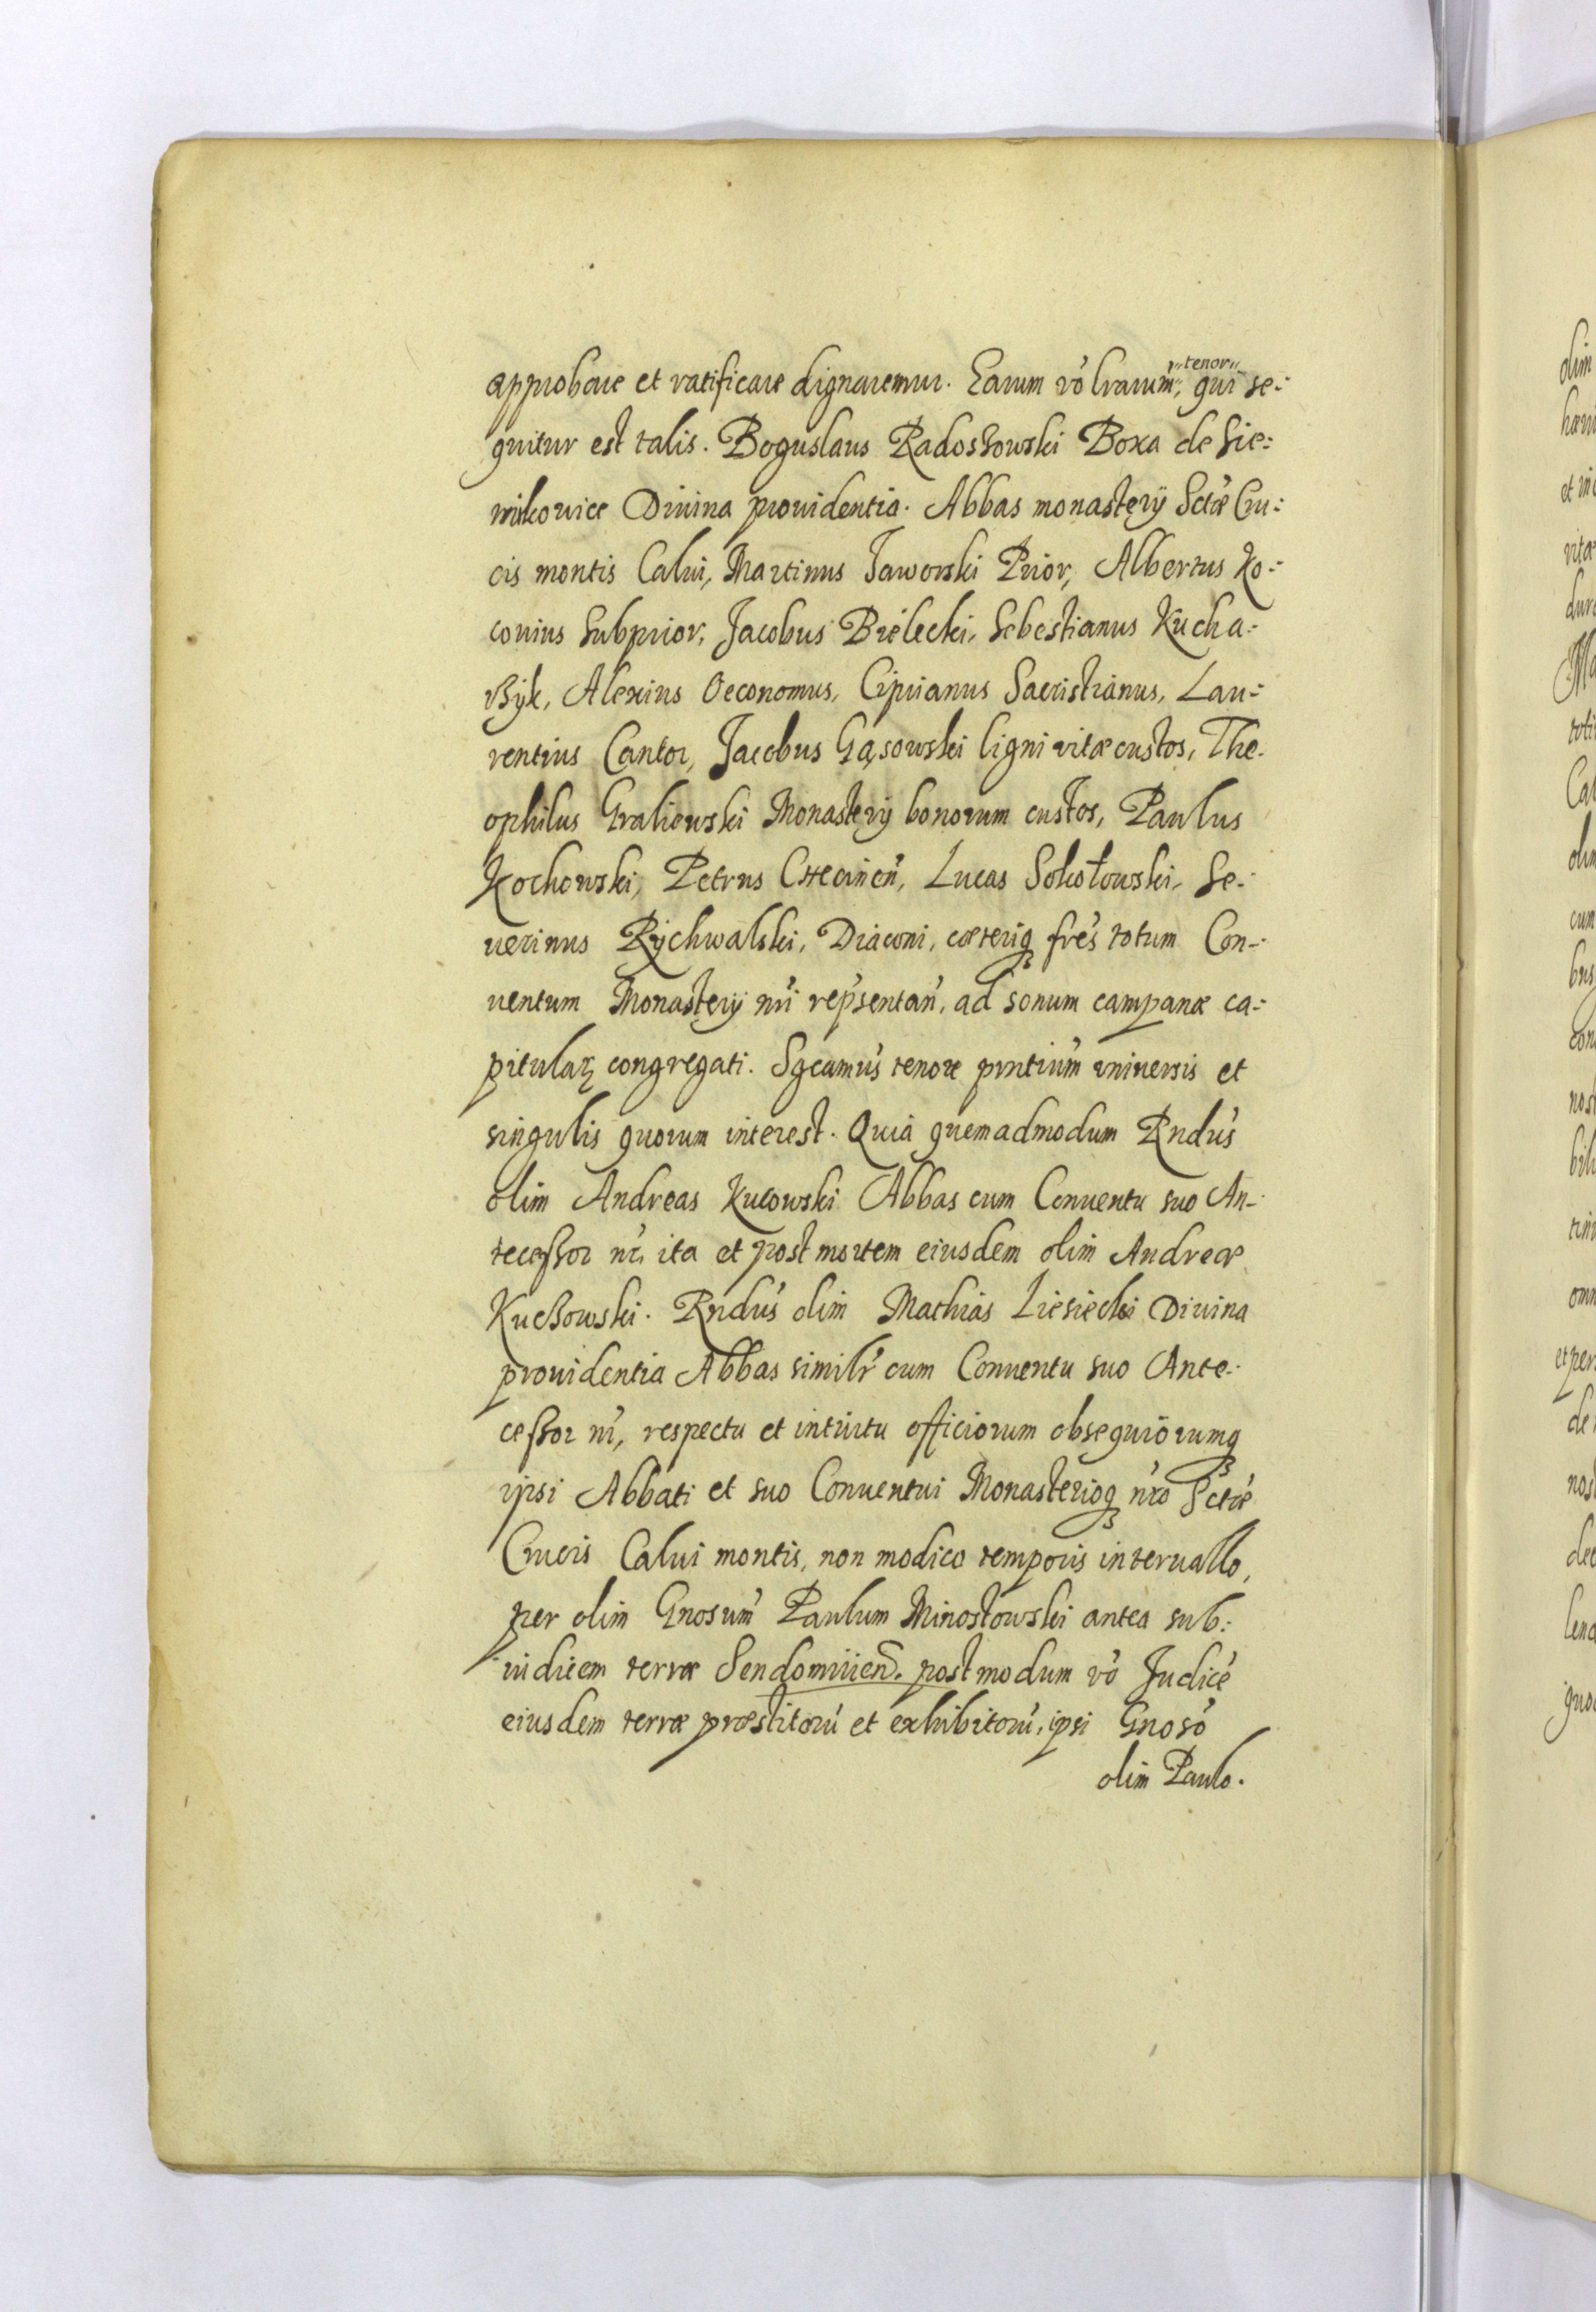 approbare et ratificare dignaremur. Earum vo̕ l̕rarum̕, tenor qui se-
quitur est talis. Boguslaus Radossowski Boxa de Sie-
mikowice Diuina prouidentia Abbas monasterÿ Sctæ̕ Cru-
cis montis Calui, Martinus Jaworski Prior, Albertus Ko-
conius Subprior, Jacobus Bielecki, Sebestianus Kucha-
rßÿk, Alexius Oeconomus, Ciprianus Sacristianus, Lau-
rentius Cantor, Jacobus Gąsowski ligni vitæ custos, The-
ophilus Graliewski Monasterÿ bonorum custos, Paulus
Kochowski, Petrus Checinen̕, Lucas Sokołowski, Se-
uerinus Rÿchwalski, Diaconi, cæteriqꝫ fre̕s totum Con-
uentum Monasterÿ nri̕ rep̕sentan̕, ad sonum campanæ ca-
pitulaꝝ congregati. Sgcamu̕s tenore pn̕tium̕ vniuersis et
singulis quorum interest. Quia quemadmodum Rndu̕s
olim Andreas Kucowski Abbas cum Conuentu suo An-
tecessor nr̕, ita et post mortem eiusdem olim Andreæ
Kucßowski. Rndu̕s olim Mathias Liesiecki Diuina
prouidentia Abbas similr̕ cum Conuentu suo Ante-
cessor nr̕, respectu et intuitu officiorum obsequiorumqꝫ
ipsi Abbati et suo Conuentui Monasterioqꝫ nr̕o Sctæ̕
Crucis Calui montis, non modico temporis interuallo,
per olim Gnosum̕ Paulum Minostowski antea sub-
iudicem terræ Sendomirien̄. postmodum vo̕ Judice̕
eiusdem terræ præstitoru̕ et exhibitoru̕, ipsi Gnoso̕
olim Paulo.